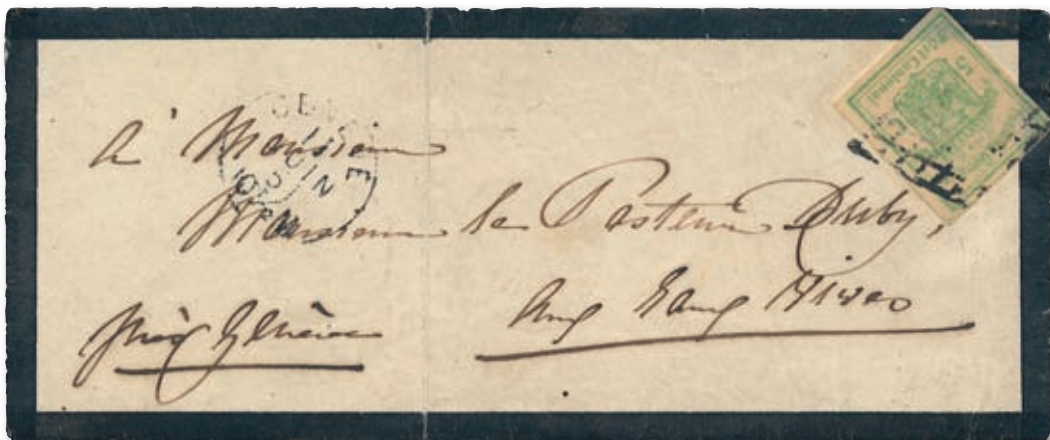 5
Port Cantonal
à Monsieur
Monsieur le Pasteur Duby,
aux Eaux Vives
près Genève